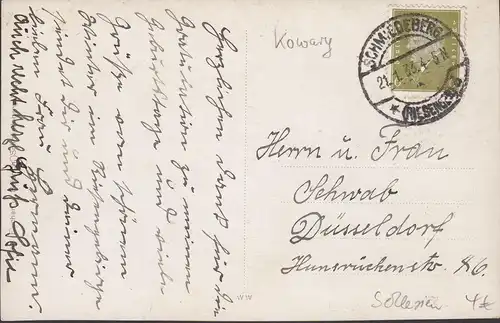 Herzlichen Dank für die
Gratulation zu meinem
Geburtstage und viele
Grüße vom schönen
Winter im Riesengebirge
sendet Dir und Deiner
lieben Frau Hermann.
Auch recht herzl. Gruß
Kowary
SCHMIEDEBERG
(RIESENGEB)
Herrn u. Frau
Schwab
Düsseldorf
Hunsrückenstr.
Schlesien